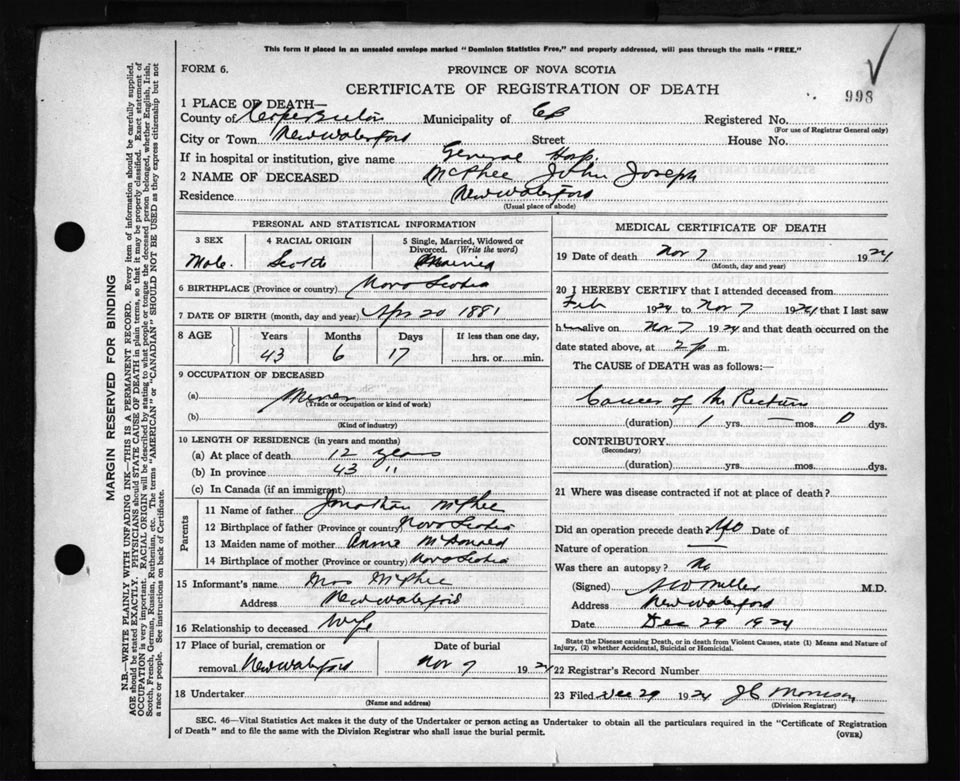 This form if placed in an unsealed envelope marked "Dominion Statistics Free," and properly addressed, will pass through the mails "FREE."
FORM 6.
PROVINCE OF NOVA SCOTIA
998
CERTIFICATE OF REGISTRATION OF DEATH
1 PLACE OF DEATH—
County of Cape Breton Municipality of CB Registered No.
(For use of Registrar General only)
City or Town New Waterford Street House No.
If in hospital or institution, give name General Hosp.
2 NAME OF DECEASED McPhee John Joseph
Residence New Waterford
(Usual place of abode)
PERSONAL AND STATISTICAL INFORMATION
3 SEX 4 RACIAL ORIGIN 5 Single, Married, Widowed or Divorced. (Write the word)
Male Scotch Married
6 BIRTHPLACE (Province or country) Nova Scotia
7 DATE OF BIRTH (month, day and year) Apr 20 1881
8 AGE Years Months Days If less than one day,
43 6 17 hrs. or min.
9 OCCUPATION OF DECEASED
(a) Miner
(Trade or occupation or kind of work)
(b)
(Kind of industry)
10 LENGTH OF RESIDENCE (in years and months)
(a) At place of death 12 years
(b) In province 43 "
(c) In Canada (if an immigrant)
Parents
11 Name of father Jonathan McPhee
12 Birthplace of father (Province or country) Nova Scotia
13 Maiden name of mother Annie McDonald
14 Birthplace of mother (Province or country) Nova Scotia
15 Informant's name Mrs McPhee
Address New Waterford
16 Relationship to deceased Wife
17 Place of burial, cremation or Date of burial
removal New Waterford Nov 7 1924
18 Undertaker
(Name and address)
MEDICAL CERTIFICATE OF DEATH
19 Date of death Nov 7 1924
(Month, day and year)
20 I HEREBY CERTIFY that I attended deceased from
Feb 1924 to Nov 7 1924 that I last saw
him alive on Nov 7 1924 and that death occurred on the
date stated above, at 2 p m.
The CAUSE of DEATH was as follows:—
Cancer of the Rectum
(duration) 1 yrs. — mos. 0 dys.
CONTRIBUTORY
(Secondary)
(duration) yrs. mos. dys.
21 Where was disease contracted if not at place of death?
Did an operation precede death? No Date of
Nature of operation —
Was there an autopsy? No
(Signed) Miller M.D.
Address New Waterford
Date Dec 29 1924
State the Disease causing Death, or in death from Violent Causes, state (1) Means and Nature of
Injury, (2) whether Accidental, Suicidal or Homicidal.
22 Registrar's Record Number
23 Filed Dec 29 1924 J C Morrison
(Division Registrar)
SEC. 46—Vital Statistics Act makes it the duty of the Undertaker or person acting as Undertaker to obtain all the particulars required in the "Certificate of Registration
of Death" and to file the same with the Division Registrar who shall issue the burial permit.
(OVER)
MARGIN RESERVED FOR BINDING
N.B.—WRITE PLAINLY WITH UNFADING INK—THIS IS A PERMANENT RECORD. Every item of information should be carefully supplied.
AGE should be stated EXACTLY. PHYSICIANS should STATE CAUSE OF DEATH in plain terms, so that it may be properly classified. Exact statement of
OCCUPATION is very important. RACIAL ORIGIN will be described by stating to what people or tongue the deceased person belonged, whether English, Irish,
Scotch, French, German, Russian, Ruthenian, etc. The terms "AMERICAN" or "CANADIAN" SHOULD NOT BE USED as they express citizenship but not
a race or people. See instructions on back of Certificate.